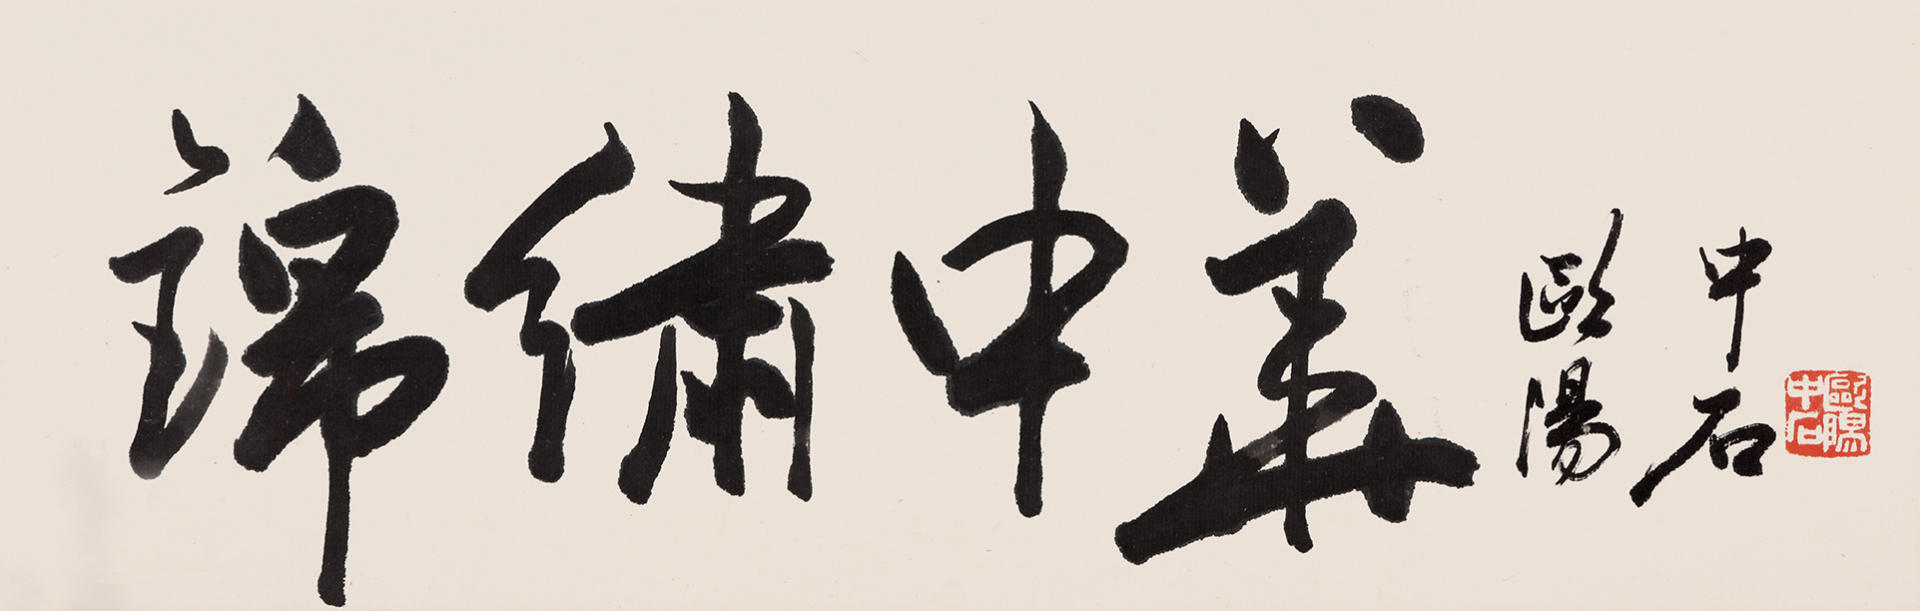 錦繡中華
歐陽
中石
歐陽中石